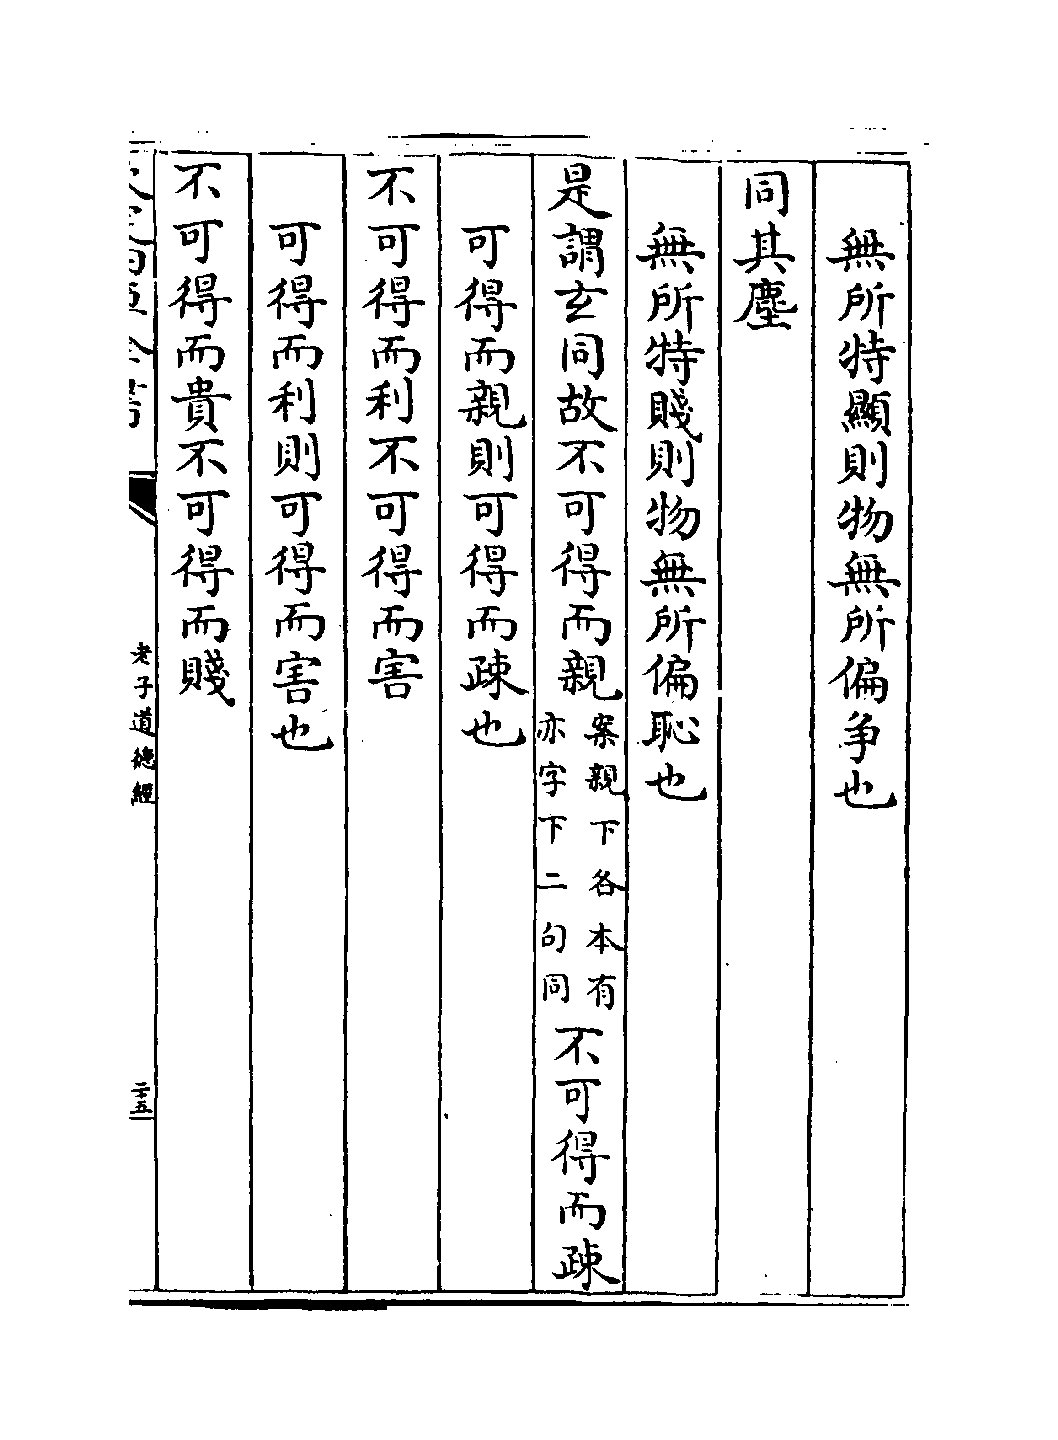 無所特顯則物無所偏争也
同其塵
無所特賤則物無所偏恥也
是謂玄同故不可得而親案親下各本有亦字下二句同不可得而疎
可得而親則可得而疎也
不可得而利不可得而害
可得而利則可得而害也
不可得而貴不可得而賤
老子道德經
二十五